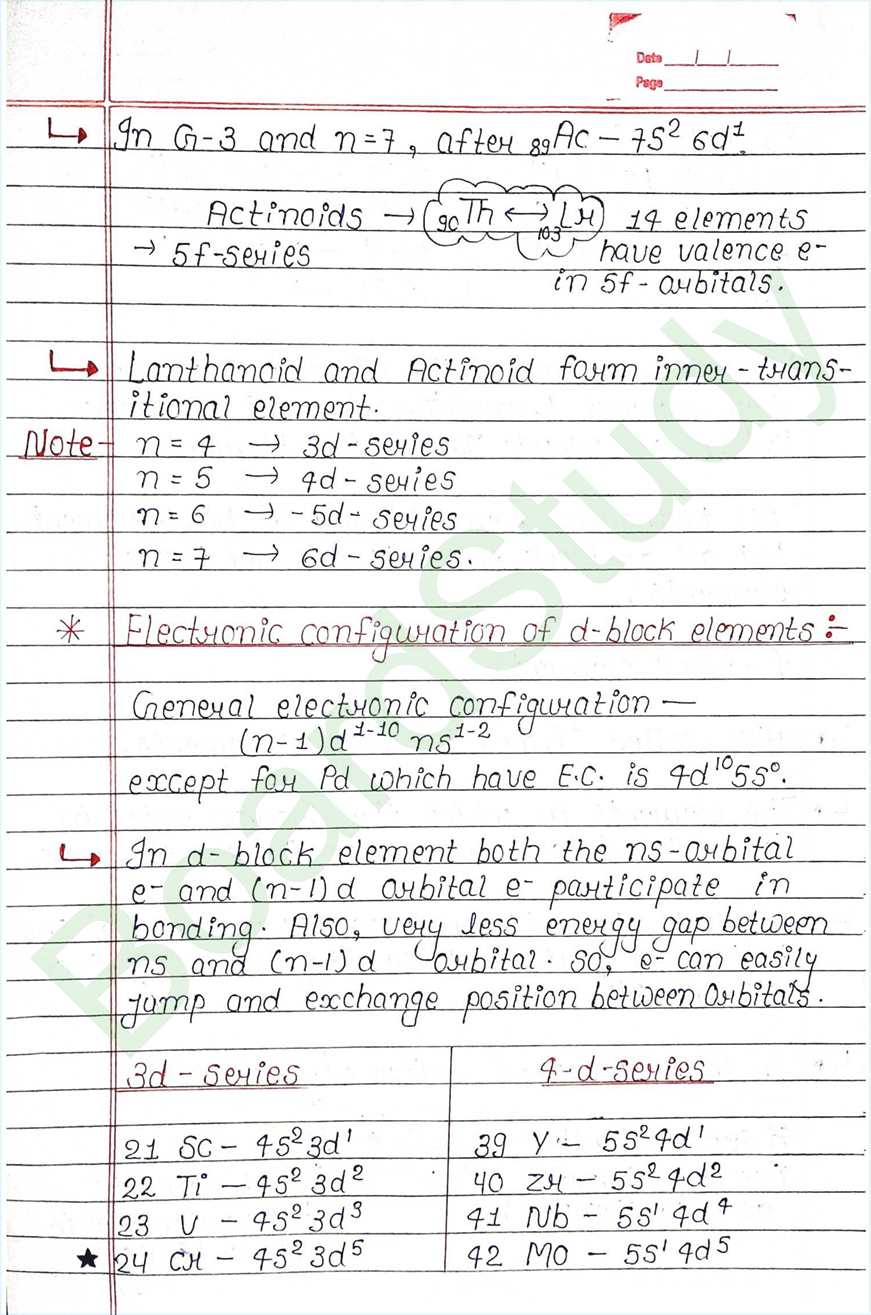 Date __/__/__
Page
↳ In G-3 and n=7, after ₈₉Ac – 7S² 6d¹.
Actinoids → (₉₀Th ↔ ₁₀₃Lr) 14 elements
→ 5f-series have valence e-
in 5f-orbitals.
↳ Lanthanoid and Actinoid form inner-trans-
itional element.
Note- n = 4 → 3d-series
n = 5 → 4d-series
n = 6 → -5d-series
n = 7 → 6d-series.
* Electronic configuration of d-block elements :-
General electronic configuration —
(n-1)d¹⁻¹⁰ ns¹⁻²
except for Pd which have E.C. is 4d¹⁰5s⁰.
↳ In d-block element both the ns-orbital
e- and (n-1)d orbital e- participate in
bonding. Also, very less energy gap between
ns and (n-1)d orbital. So, e- can easily
jump and exchange position between Orbitals.
3d-series 4-d-series
21 SC – 4S² 3d¹ 39 Y – 5S² 4d¹
22 Ti – 4S² 3d² 40 Zr – 5S² 4d²
23 V – 4S² 3d³ 41 Nb – 5S¹ 4d⁴
★ 24 Cr – 4S² 3d⁵ 42 MO – 5S¹ 4d⁵
BoardStudy